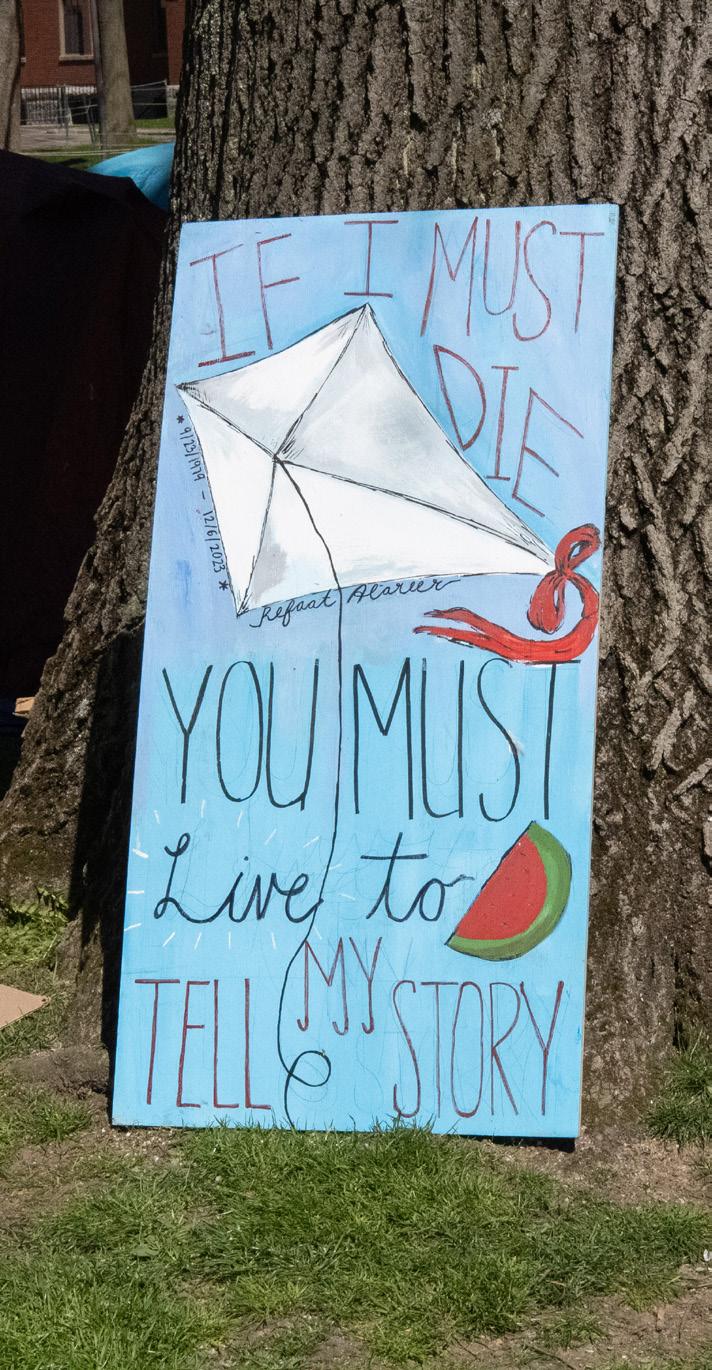 IF I MUST
DIE
* 9/23/1979 - 12/6/2023 *
Refaat Alareer
YOU MUST
Live to
TELL MY STORY